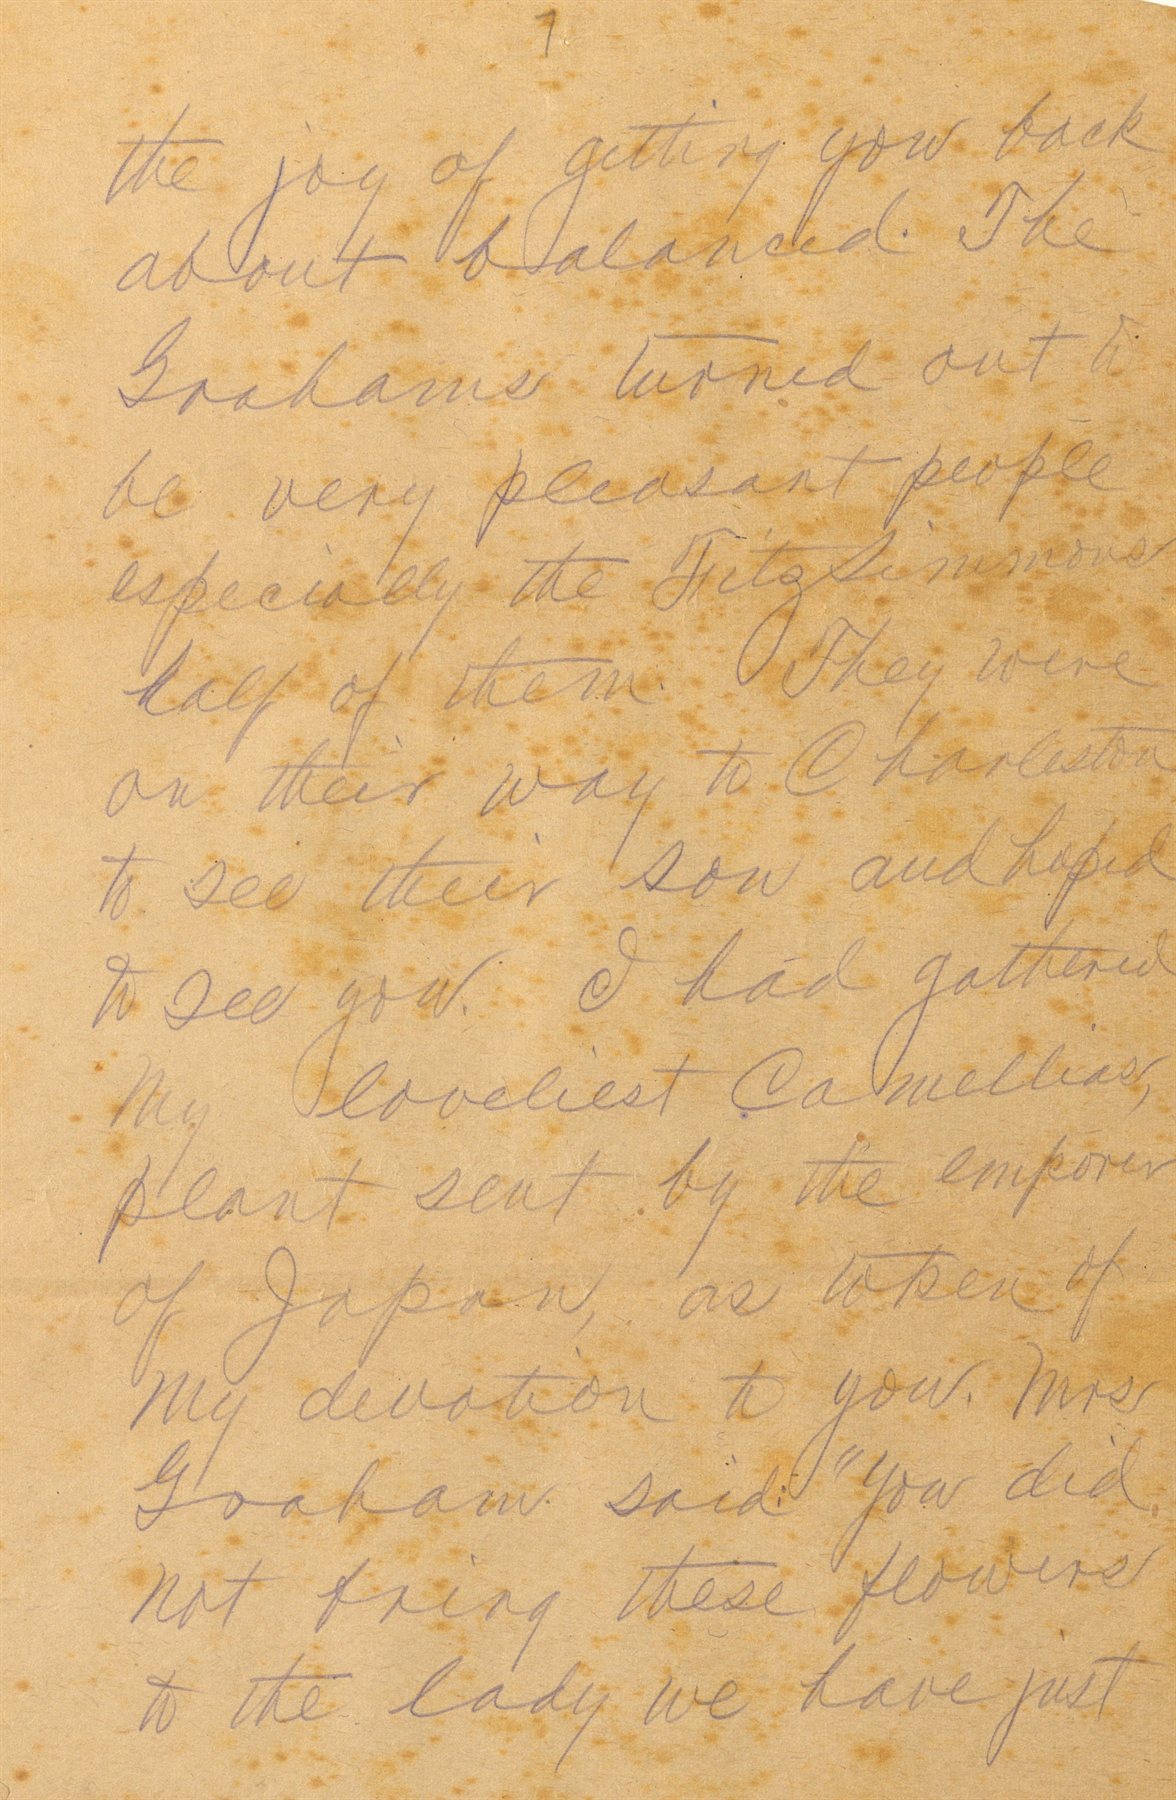 7
the joy of getting you back
about balanced. The
Grahams turned out to
be very pleasant people
especially the FitzSimmons
half of them. They were
on their way to Charleston
to see their son and hoped
to see you. I had gathered
my loveliest Camellias,
plant sent by the emporer
of Japan, as token of
my devotion to you. Mrs
Graham said: "You did
not bring these flowers
to the lady we have just